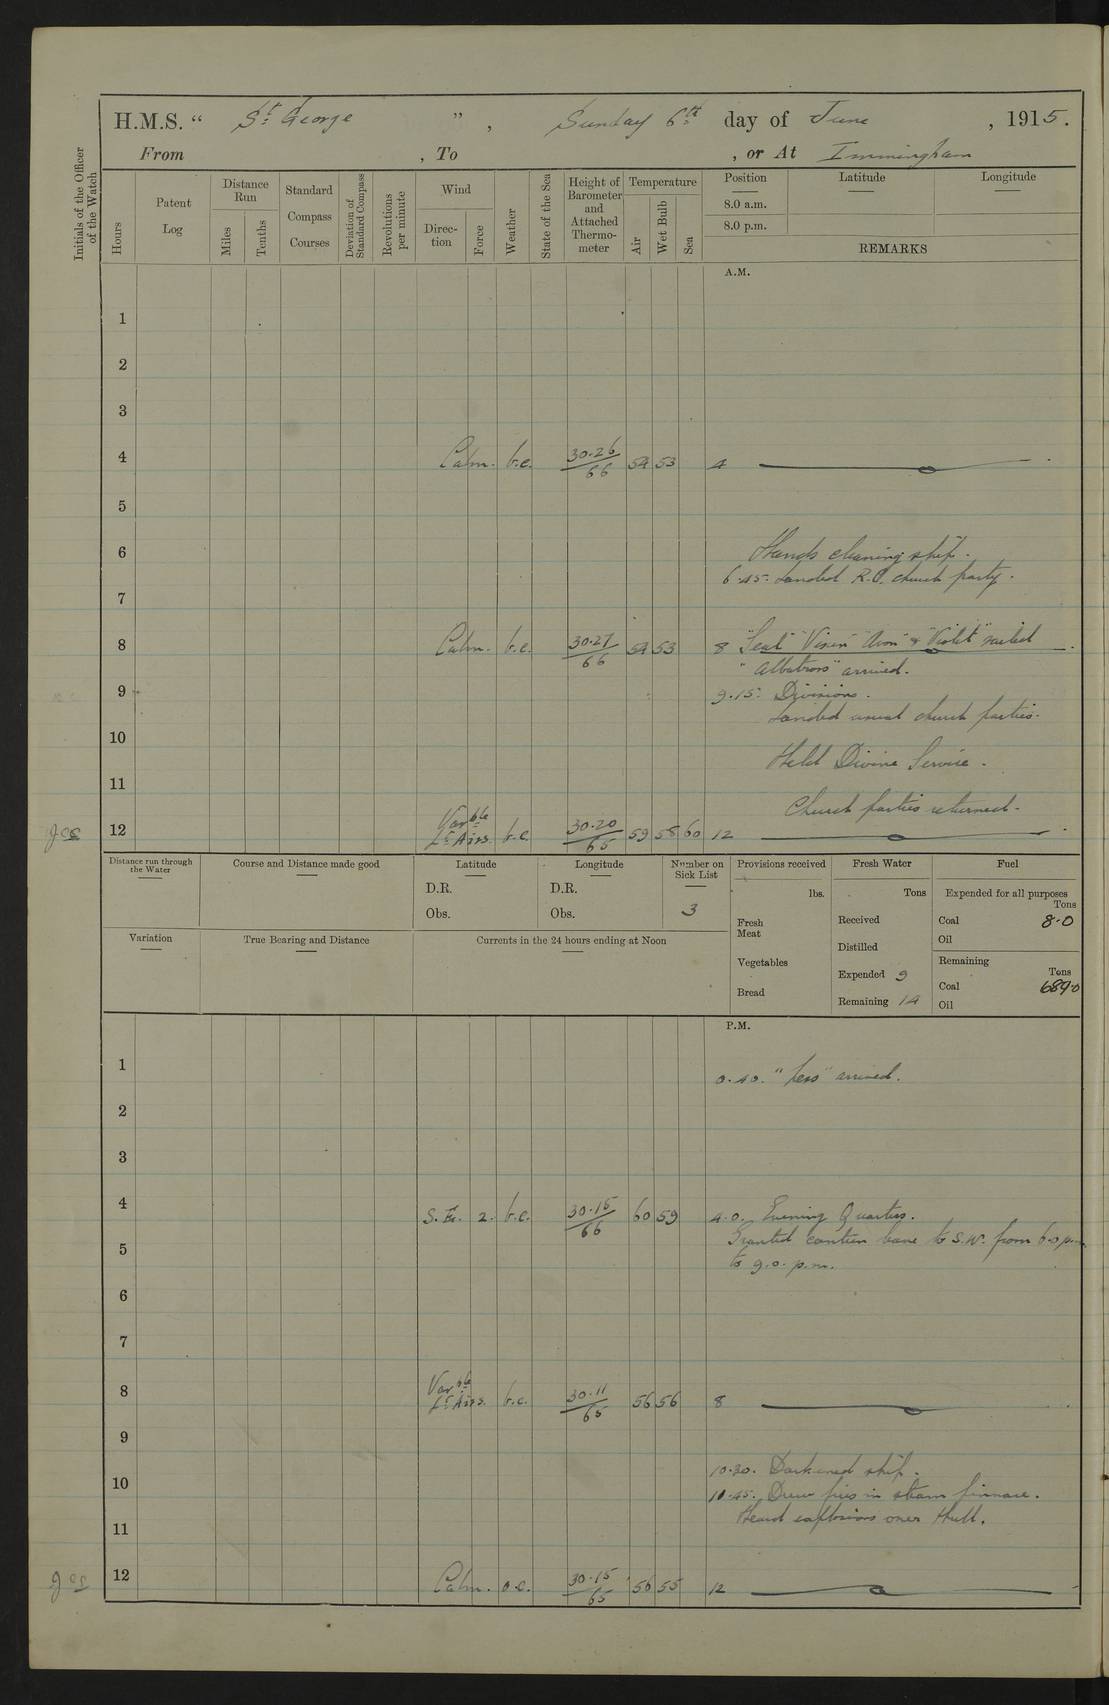 H.M.S. “ St George ” , Sunday 6th day of June , 1915.
From , To , or At Immingham
Initials of the Officer of the Watch
Hours
Patent Log
Distance Run
Miles
Tenths
Standard Compass Courses
Deviation of Standard Compass
Revolutions per minute
Wind
Direction
Force
Weather
State of the Sea
Height of Barometer and Attached Thermometer
Temperature
Air
Wet Bulb
Sea
Position
8.0 a.m.
8.0 p.m.
Latitude
Longitude
REMARKS
A.M.
1
2
3
4 Calm. b.c. 30.26/66 54 53 4
5
6 Hands cleaning ship.
6.45. Landed R.C. church party.
7
8 Calm. b.c. 30.27/66 54 53 8 "Seal" "Vixen" "Avon" & "Violet" sailed
"Albatross" arrived.
9 9.15. Divisions.
Landed usual church parties.
10
Held Divine Service.
11
Church parties returned.
12 Varble Lt Airs. b.c. 30.20/65 59 58 60 12
Distance run through the Water
Course and Distance made good
Latitude
D.R.
Obs.
Longitude
D.R.
Obs.
Number on Sick List
3
Provisions received
lbs.
Fresh Meat
Vegetables
Bread
Fresh Water
Tons
Received
Distilled
Expended 9
Remaining 14
Fuel
Expended for all purposes
Tons
Coal 8.0
Oil
Remaining
Tons
Coal 689.0
Oil
Variation
True Bearing and Distance
Currents in the 24 hours ending at Noon
P.M.
1 0.40. "Ness" arrived.
2
3
4 S.E. 2. b.c. 30.15/66 60 59 4.0. Evening Quarters.
Granted canteen leave to S.W. from 6.0 p.m.
5 to 9.0. p.m.
6
7
8 Varble Lt Airs. b.c. 30.11/65 56 56 8
9
10.30. Darkened ship.
10 10.45. Drew fires in steam pinnace.
Heard explosions over Hull.
11
12 Calm. o.c. 30.15/65 56 55 12